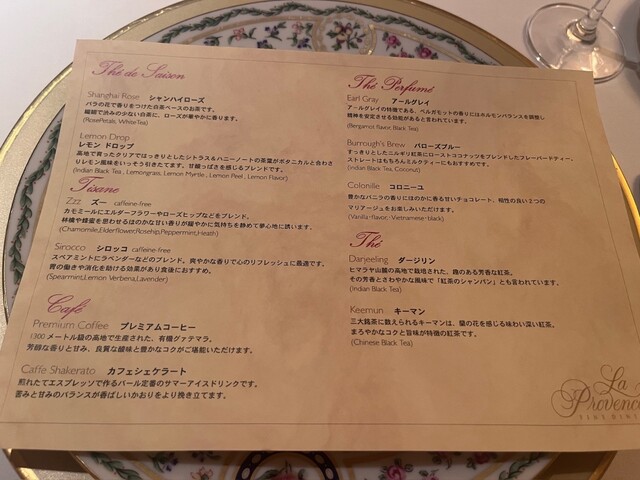 Thé de Saison
Shanghai Rose シャンハイローズ
バラの花で香りをつけた白茶ベースのお茶です。
繊細で渋みの少ない白茶に、ローズが華やかに香ります。
(RosePetals, WhiteTea)
Lemon Drop
レモン ドロップ
高地で育ったクリアではっきりとしたシトラス&ハニーノートの茶葉がボタニカルと合わさ
りレモン風味をいっそう引きたてます。甘酸っぱさを感じるブレンドです。
(Indian Black Tea , Lemongrass, Lemon Myrtle , Lemon Peel , Lemon Flavor)
Tisane
Zzz ズー caffeine-free
カモミールにエルダーフラワーやローズヒップなどをブレンド。
林檎や蜂蜜を思わせるほのかな甘い香りが緩やかに気持ちを静めて夢心地に誘います。
(Chamomile,Elderflower,Rosehip,Peppermint,Heath)
Sirocco シロッコ caffeine-free
スペアミントにラベンダーなどのブレンド。爽やかな香りで心のリフレッシュに最適です。
胃の働きや消化を助ける効果があり食後におすすめ。
(Spearmint,Lemon Verbena,Lavender)
Café
Premium Coffee プレミアムコーヒー
1300 メートル級の高地で生産された、有機グァテマラ。
芳醇な香りと甘み、良質な酸味と豊かなコクがご堪能いただけます。
Caffe Shakerato カフェシェケラート
煎れたてエスプレッソで作るバール定番のサマーアイスドリンクです。
苦みと甘みのバランスが香ばしいかおりをより挽き立てます。
Thé Perfumé
Earl Gray アールグレイ
アールグレイの特徴である、ベルガモットの香りにはホルモンバランスを調整し
精神を安定させる効能があると言われています。
(Bergamot flavor, Black Tea)
Burrough's Brew バローズブルー
すっきりとしたニルギリ紅茶にローストココナッツをブレンドしたフレーバードティー。
ストレートはもちろんミルクティーにもおすすめです。
(Indian Black Tea, Coconut)
Colonille コロニーユ
豊かなバニラの香りにほのかに香る甘いチョコレート、相性の良い2つの
マリアージュをお楽しみいただけます。
(Vanilla-flavor, Vietnamese black)
Thé
Darjeeling ダージリン
ヒマラヤ山麓の高地で栽培された、趣のある芳香な紅茶。
その芳香とさわやかな風味で「紅茶のシャンパン」とも言われています。
(Indian Black Tea)
Keemun キーマン
三大銘茶に数えられるキーマンは、蘭の花を感じる味わい深い紅茶。
まろやかなコクと旨味が特徴の紅茶です。
(Chinese Black Tea)
La
Provence